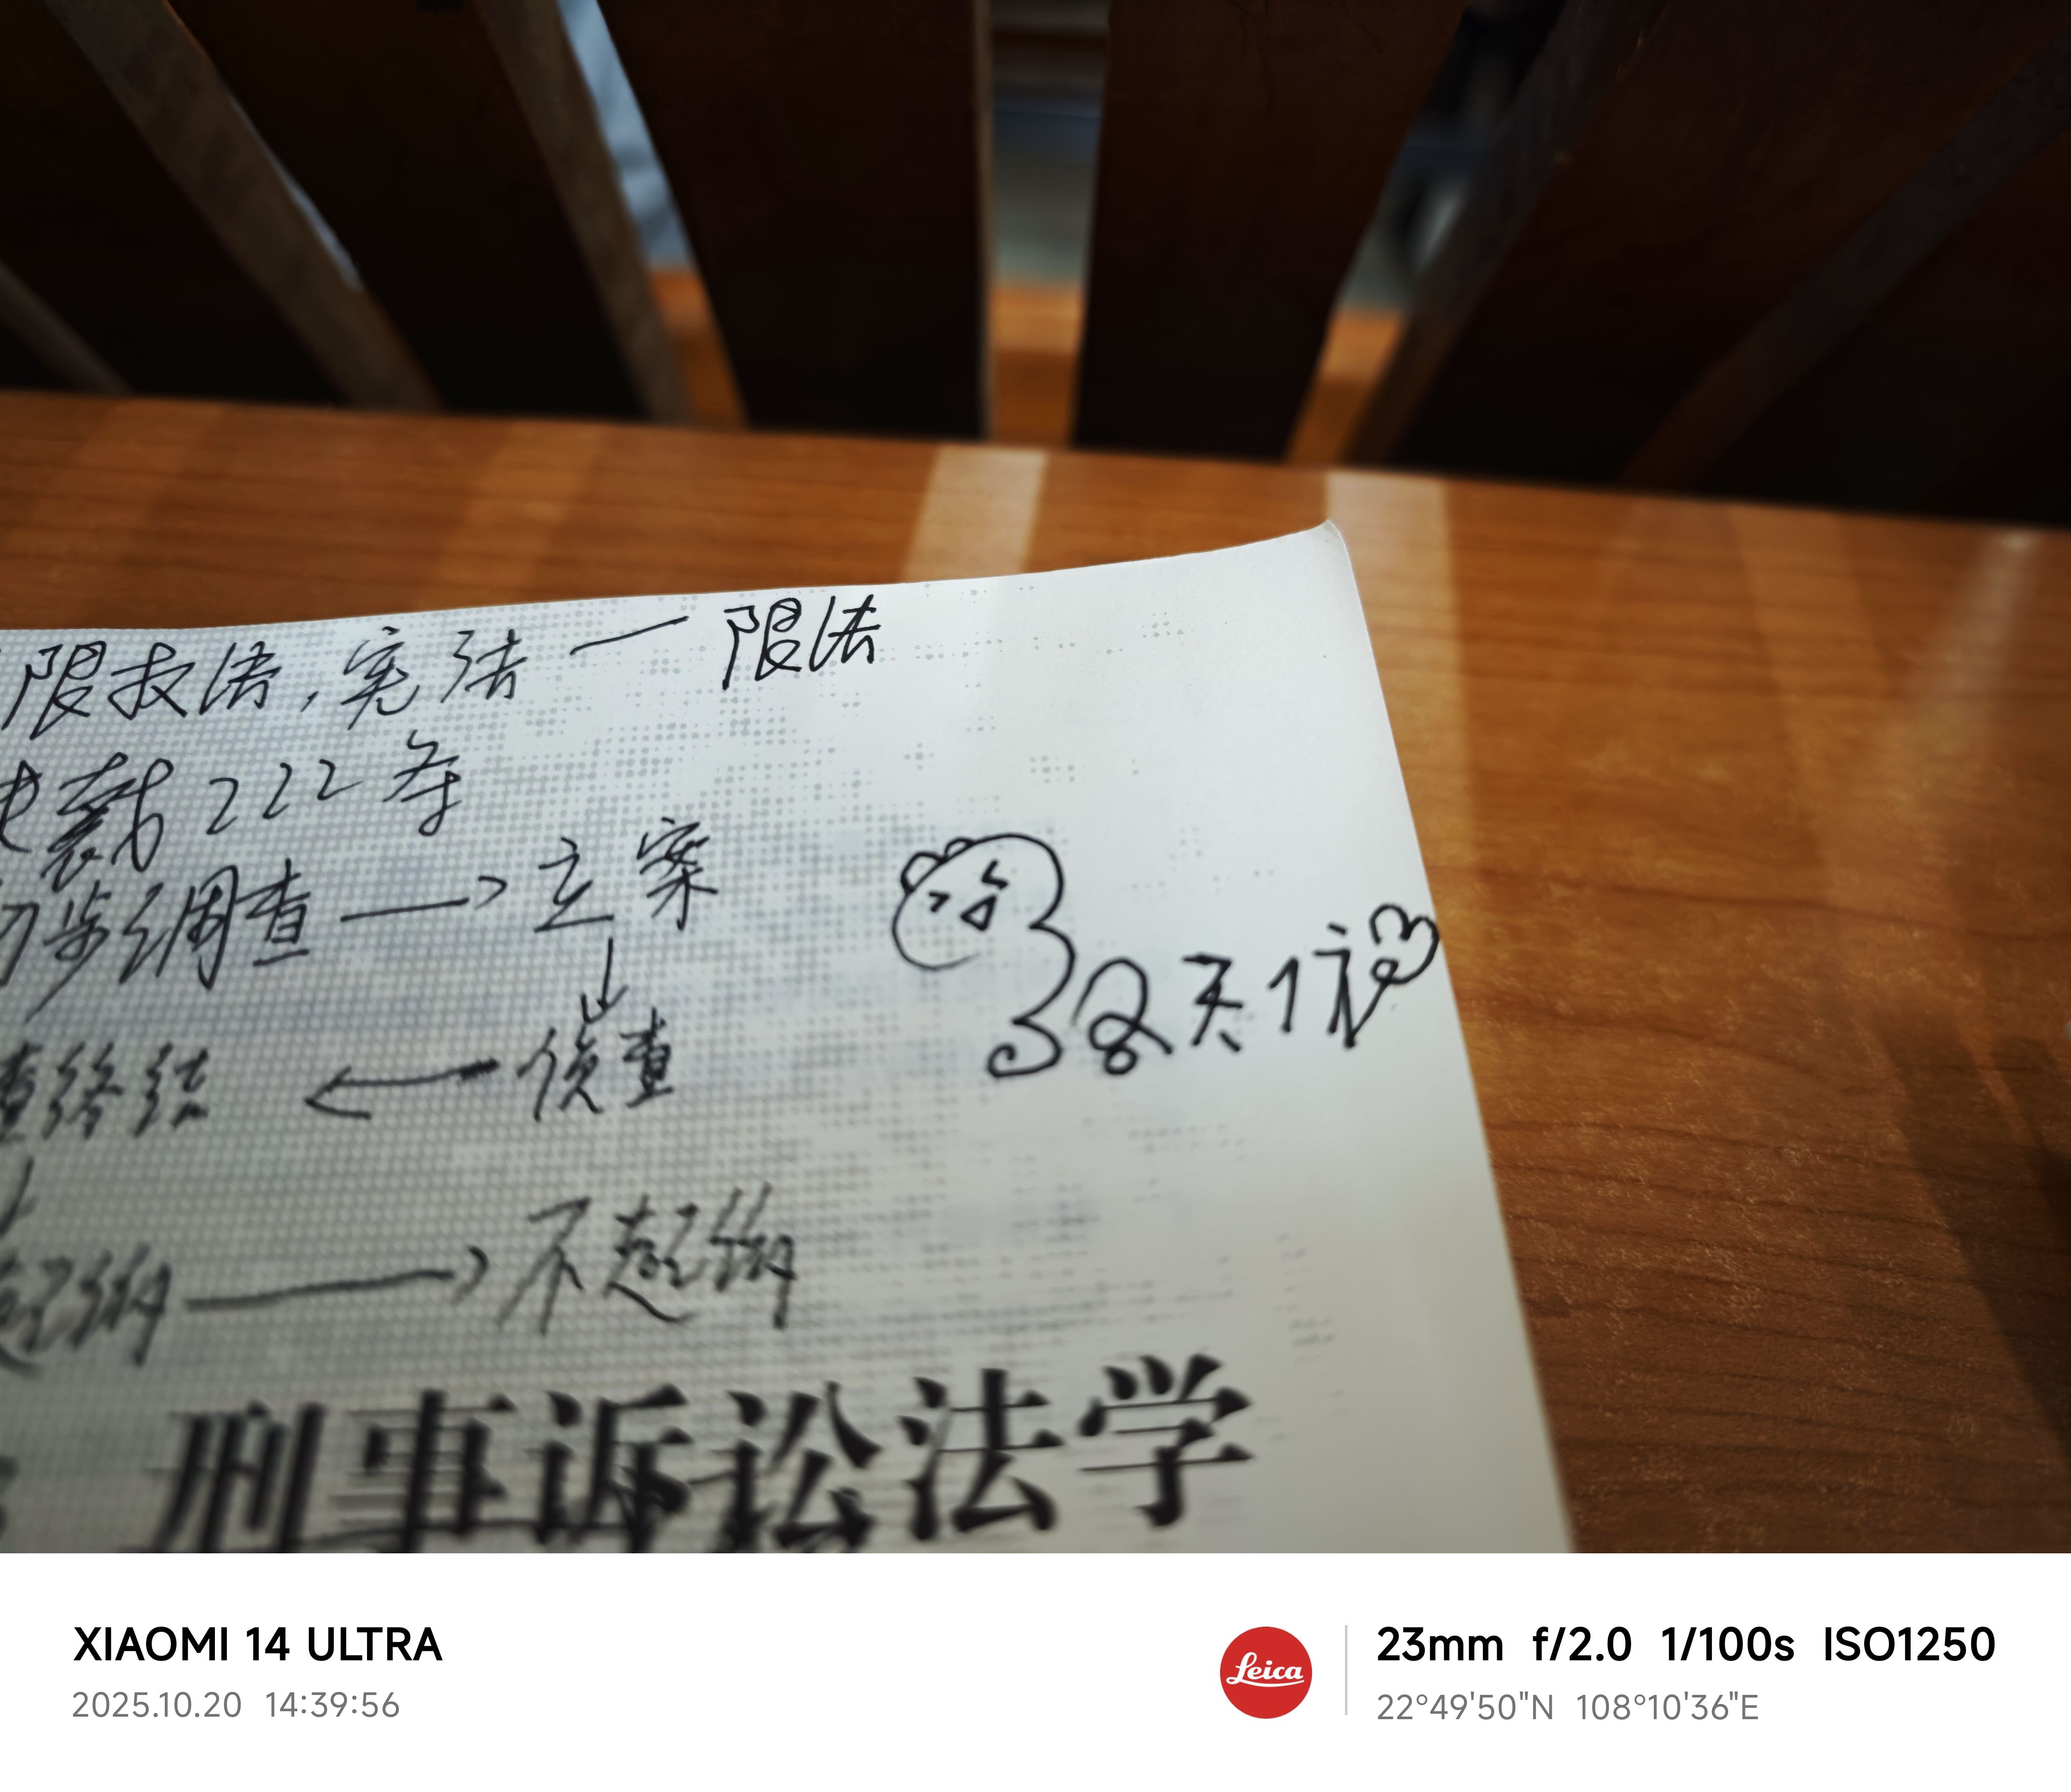 限权法,宪法一限法
载222条
初步调查→立案
↓
侦查
查终结←
起诉→不起诉
刑事诉讼法学
XIAOMI 14 ULTRA
2025.10.20 14:39:56
Leica
23mm f/2.0 1/100s ISO1250
22°49'50"N 108°10'36"E